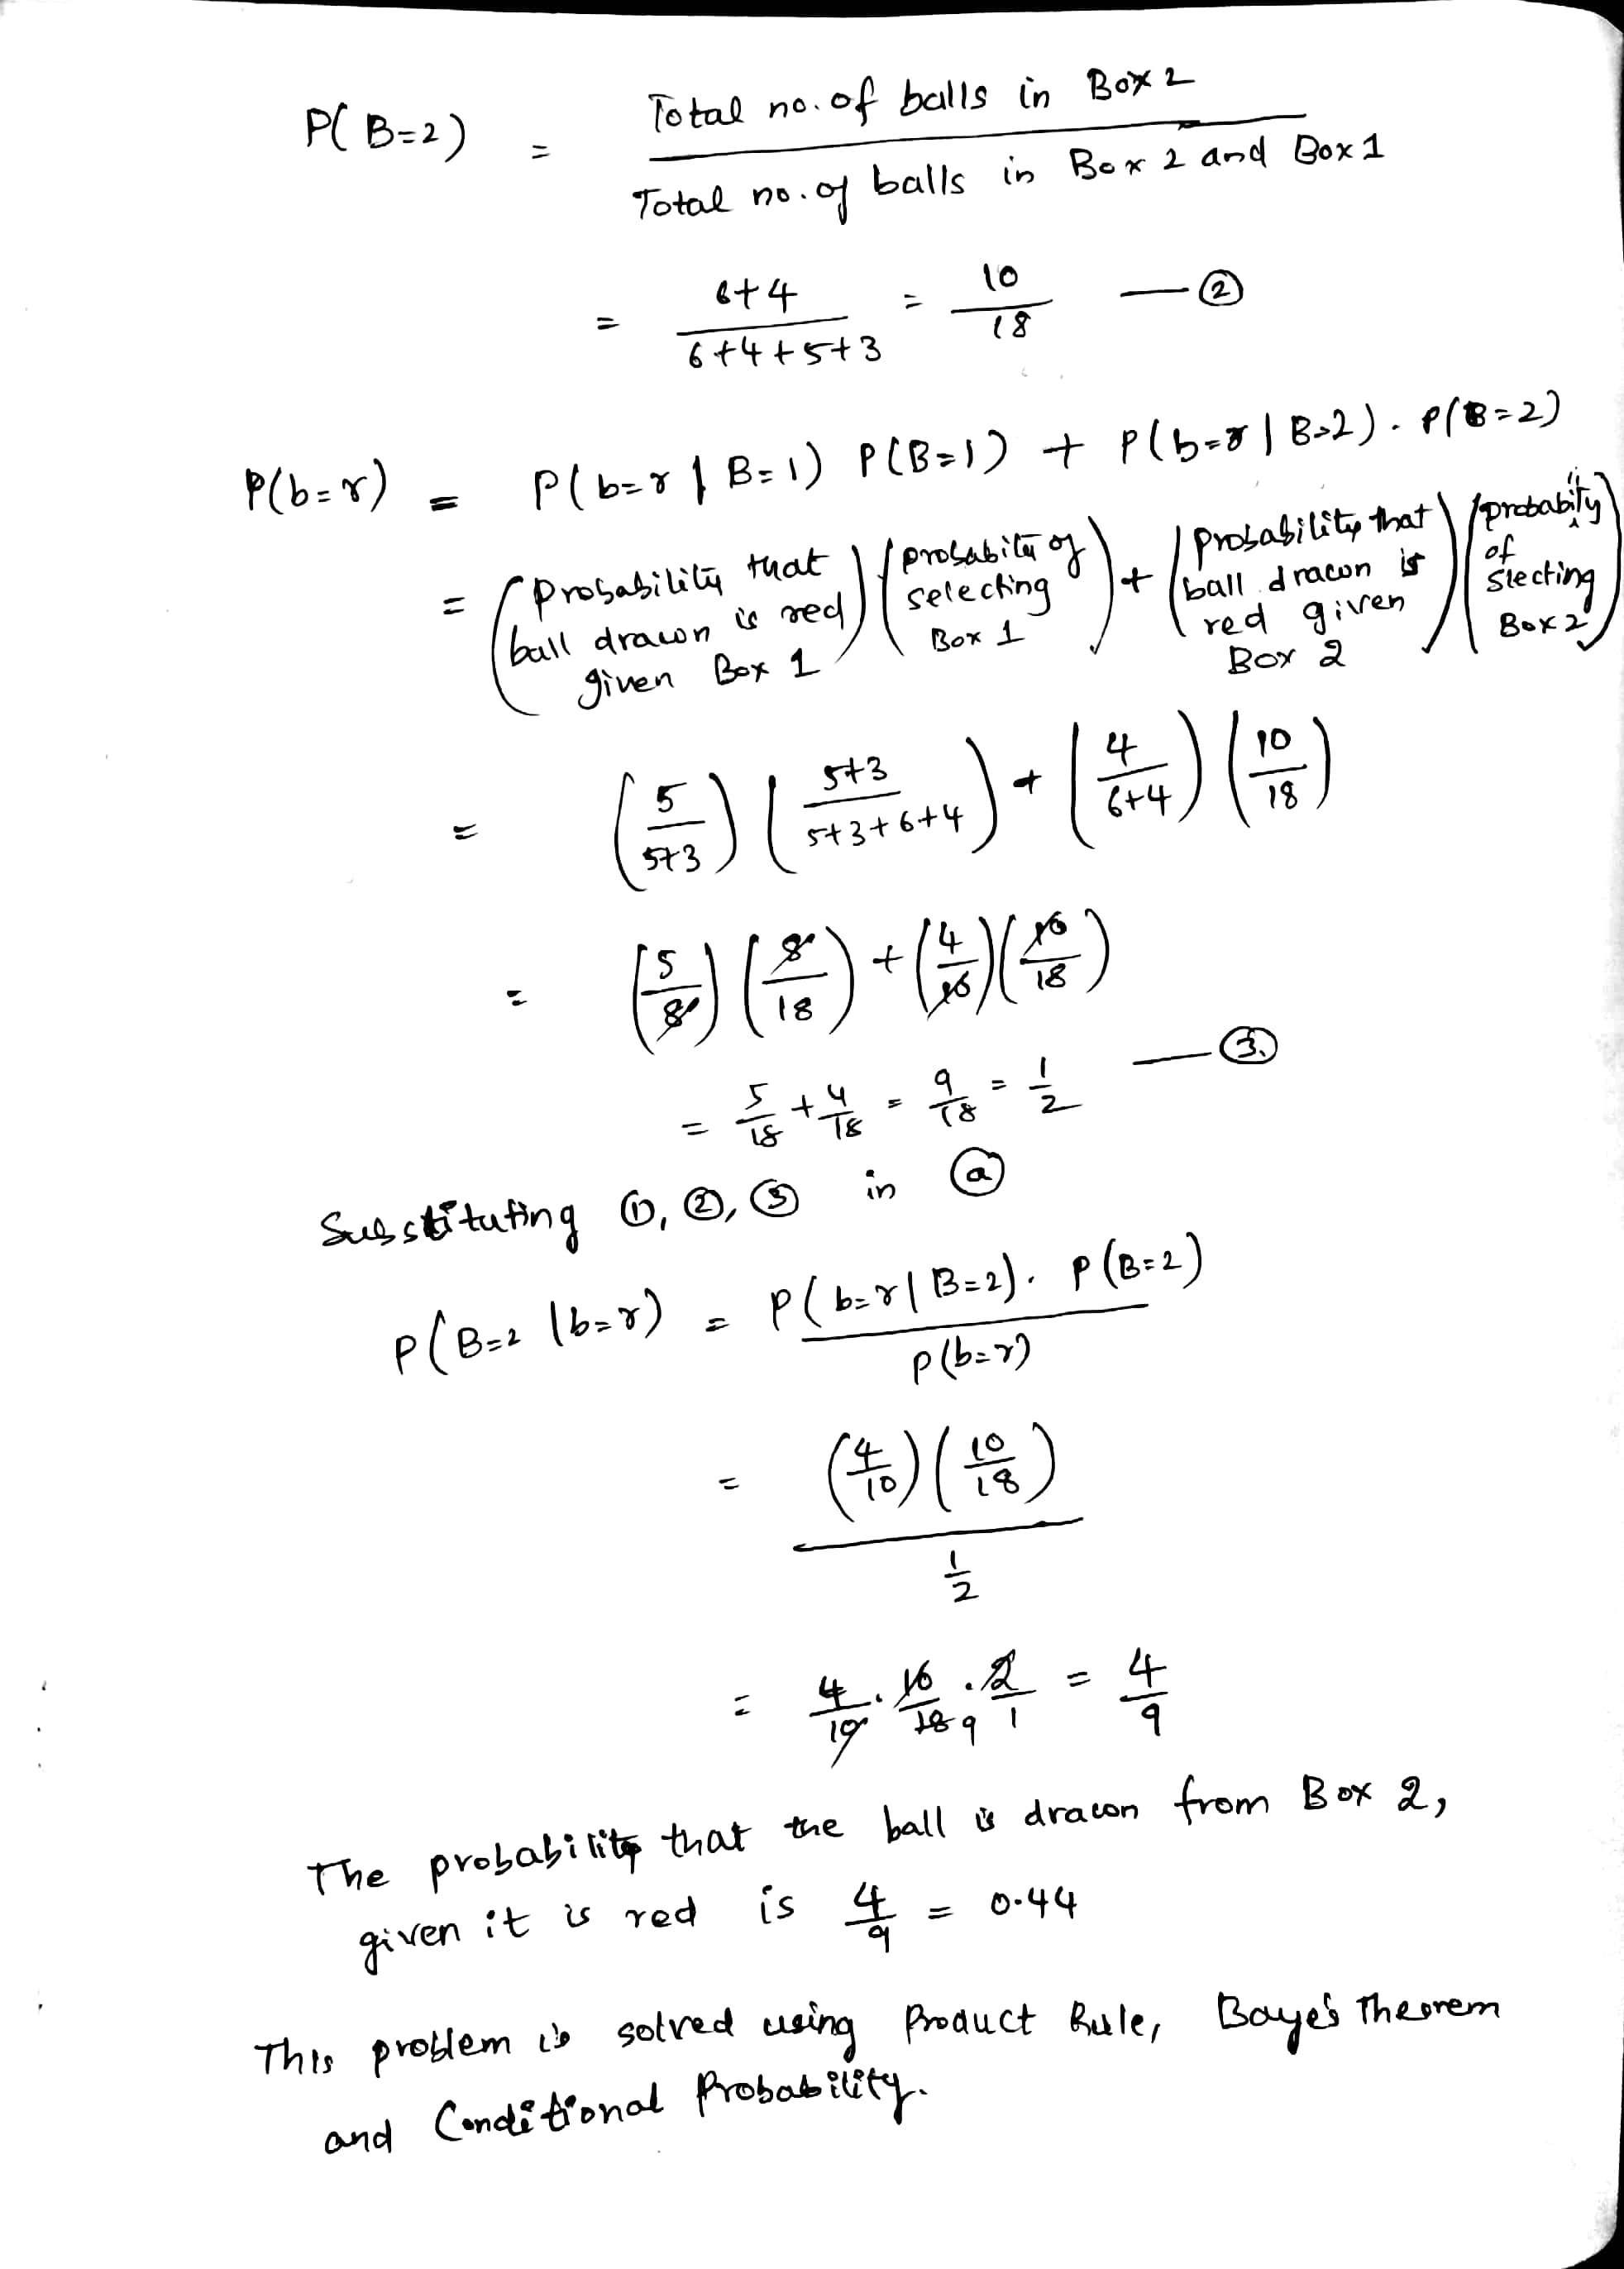 P(B=2) = Total no. of balls in Box 2
Total no. of balls in Box 2 and Box 1
= 6+4 / 6+4+5+3 = 10/18 — ②
P(b=r) = P(b=r | B=1) P(B=1) + P(b=r | B=2). P(B=2)
= (Probability that ball drawn is red given Box 1) (probability of selecting Box 1) + (probability that ball drawn is red given Box 2) (probability of slecting Box 2)
= (5/5+3) (5+3/5+3+6+4) + (4/6+4) (10/18)
= (5/8) (8/18) + (4/10) (10/18)
= 5/18 + 4/18 = 9/18 = 1/2 — ③
Substituting ①, ②, ③ in ⓐ
P(B=2 | b=r) = P(b=r | B=2). P(B=2) / P(b=r)
= (4/10) (10/18) / 1/2
= 4/10 . 10/18 9 . 2/1 = 4/9
The probability that the ball is drawn from Box 2,
given it is red is 4/9 = 0.44
This problem is solved using Product Rule, Baye's Theorem
and Conditional Probability.